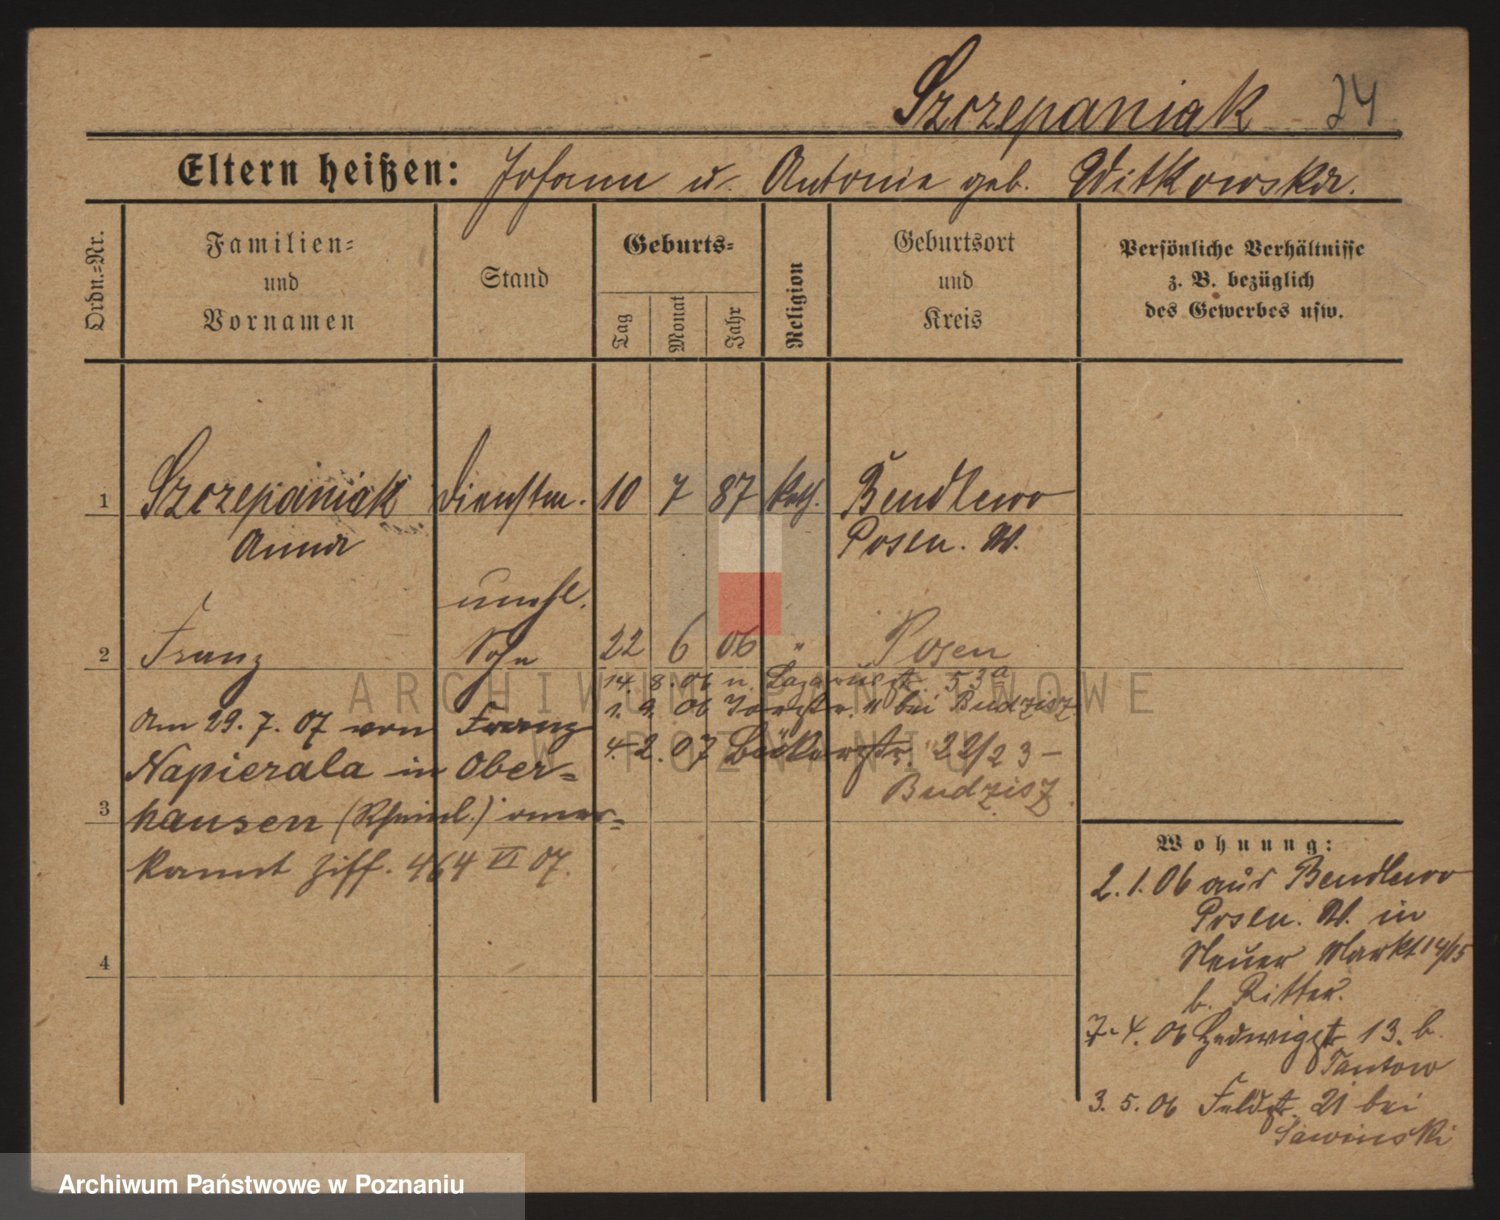 Szczepaniak 24
Eltern heißen: Johann u. Antonie geb. Witkowska.
Ordn.=Nr.
Familien= und Vornamen
Stand
Geburts=
Tag
Monat
Jahr
Religion
Geburtsort und Kreis
Persönliche Verhältnisse
z. B. bezüglich
des Gewerbes usw.
1 Szczepaniak Dienstm. 10 7 87 kath. Bendlewo
Anna Posen. W.
unehl.
2 Franz Sohn 22 6 06 " Posen
14. 8. 06 n. Lazarusstr. 53a
1. 9. 06 bei Budzisz
4. 2. 07 Bäckerstr. 22/23 –
Budzisz.
Am 29. 7. 07 von Franz
Napierala in Ober=
3 hausen (Rheinl.) aner=
kannt Ziff. 464 VI 07.
4
Wohnung:
2. 1. 06 aus Bendlewo
Posen. W. in
Neuer Markt 14/15
b. Ritter.
7. 4. 06 Hedwigstr 13. b.
Tantow
3. 5. 06 Feldstr. 21 bei
Sawinski
ARCHIWUM PAŃSTWOWE
W POZNANIU
Archiwum Państwowe w Poznaniu